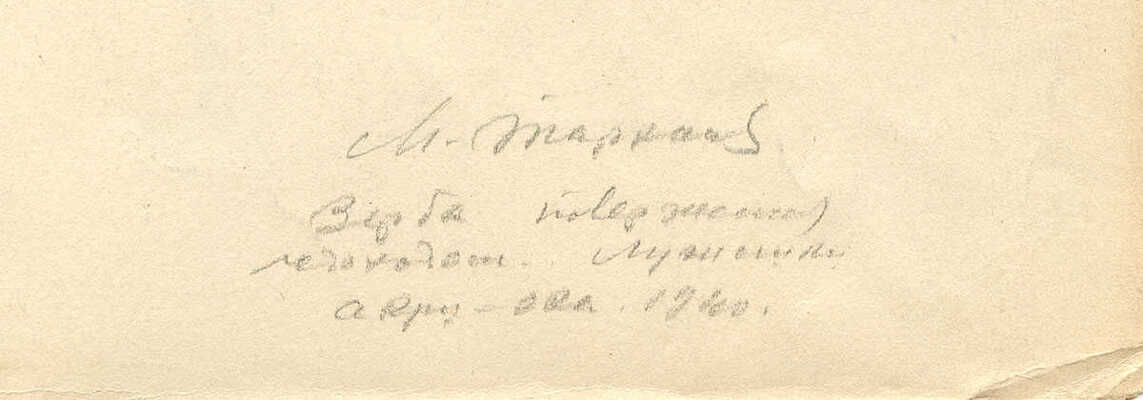 М. Тарханов
Верба поверженная
ледоходом. Лужники
акрц-ва. 1940.